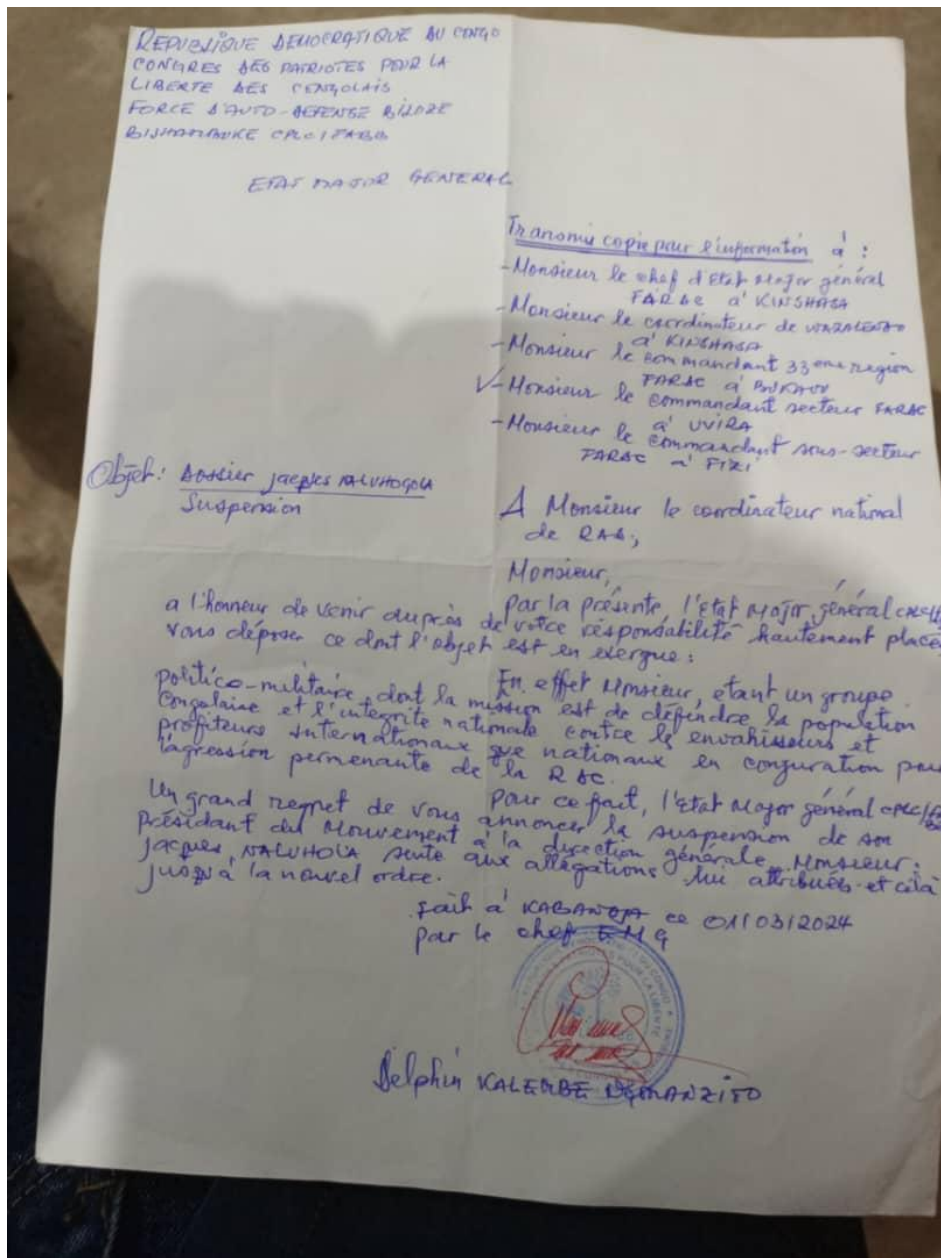 REPUBLIQUE DEMOCRATIQUE DU CONGO
CONGRES DES PATRIOTES POUR LA
LIBERTE DES CONGOLAIS
FORCE D'AUTO-DEFENSE BILOZE
BISHAMBUKE CPLC/FABB
ETAT MAJOR GENERAL
Transmis copie pour l'information à :
- Monsieur le chef d'Etat Major général
FARDC à KINSHASA
- Monsieur le coordinateur de WAZALENDO
à KINSHASA
- Monsieur le commandant 33eme region
FARDC à BUKAVU
- Monsieur le commandant secteur FARDC
à UVIRA
- Monsieur le commandant sous-secteur
FARDC à FIZI
Objet: Dossier jacques
Suspension
A Monsieur le coordinateur national
de
Monsieur,
Par la présente, l'Etat Major général
a l'honneur de venir auprès de votre résponsabilité hautement placée
vous déposer ce dont l'objet est en exergue :
En effet Monsieur, etant un groupe
politico-militaire dont la mission est de défindre la population
Congolaise et l'intégrité nationale contre les envahisseurs et
profiteurs internationaux que nationaux en conjuration pour
l'agression permenante de la RDC.
Pour ce fait, l'Etat Major général
Un grand regret de vous annoncer la suspension de son
Présidant du Mouvement à la direction générale Monsieur :
jacques suite aux allégations lui attribués et cela
jusqu'à la nouvel ordre.
Fait à ce 01/03/2024
par le chef EMG
Delphin KALEMBE